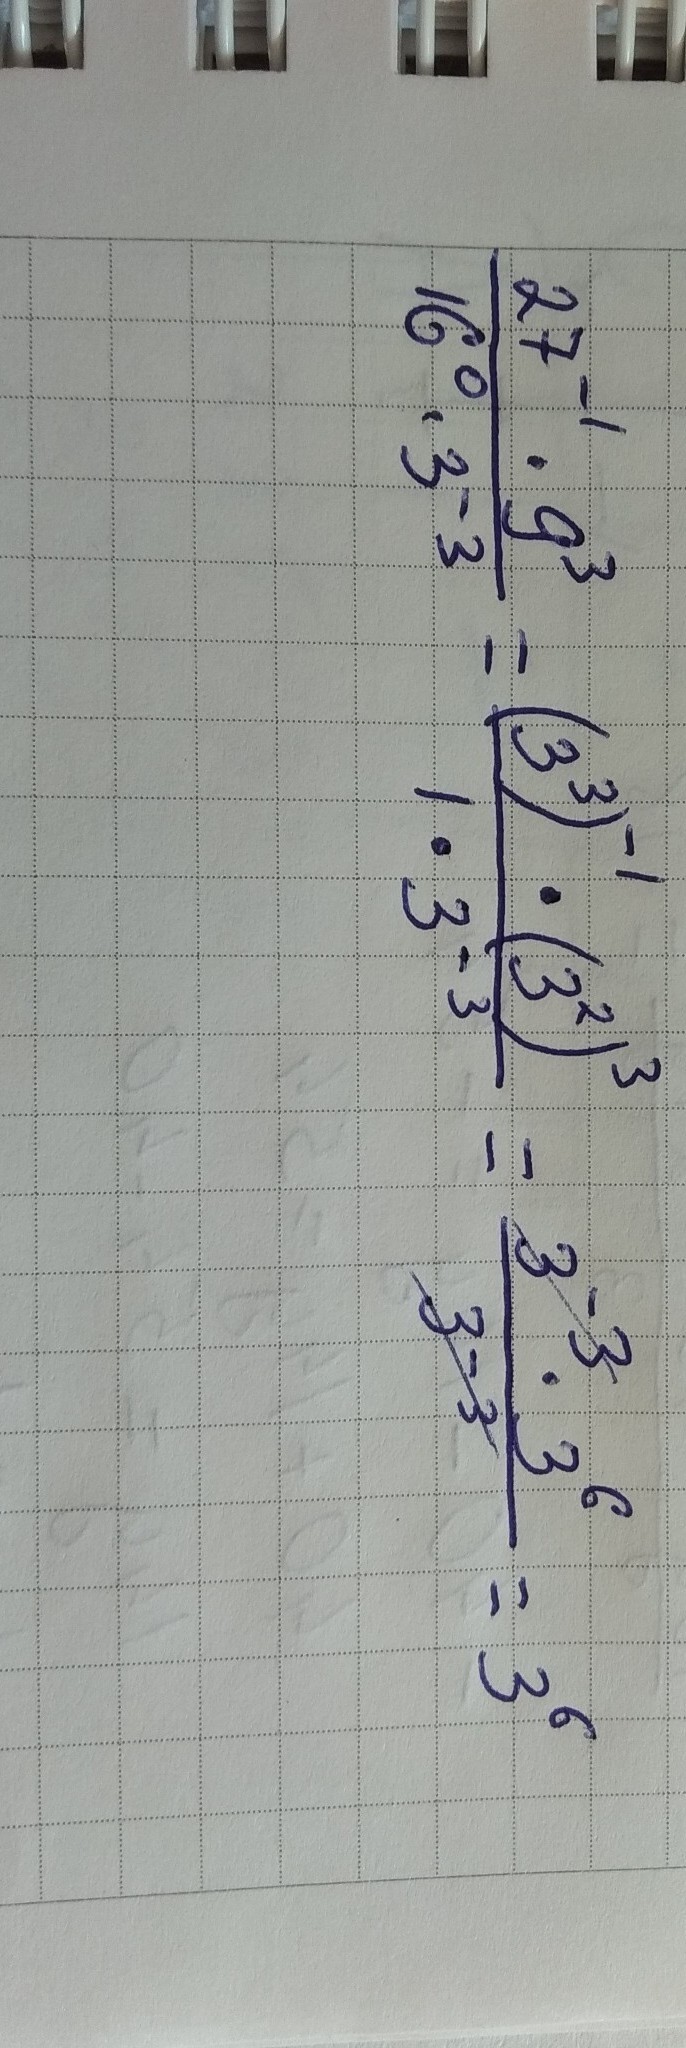 27⁻¹ · 9³ / 16⁰ · 3⁻³ = (3³)⁻¹ · (3²)³ / 1 · 3⁻³ = 3⁻³ · 3⁶ / 3⁻³ = 3⁶